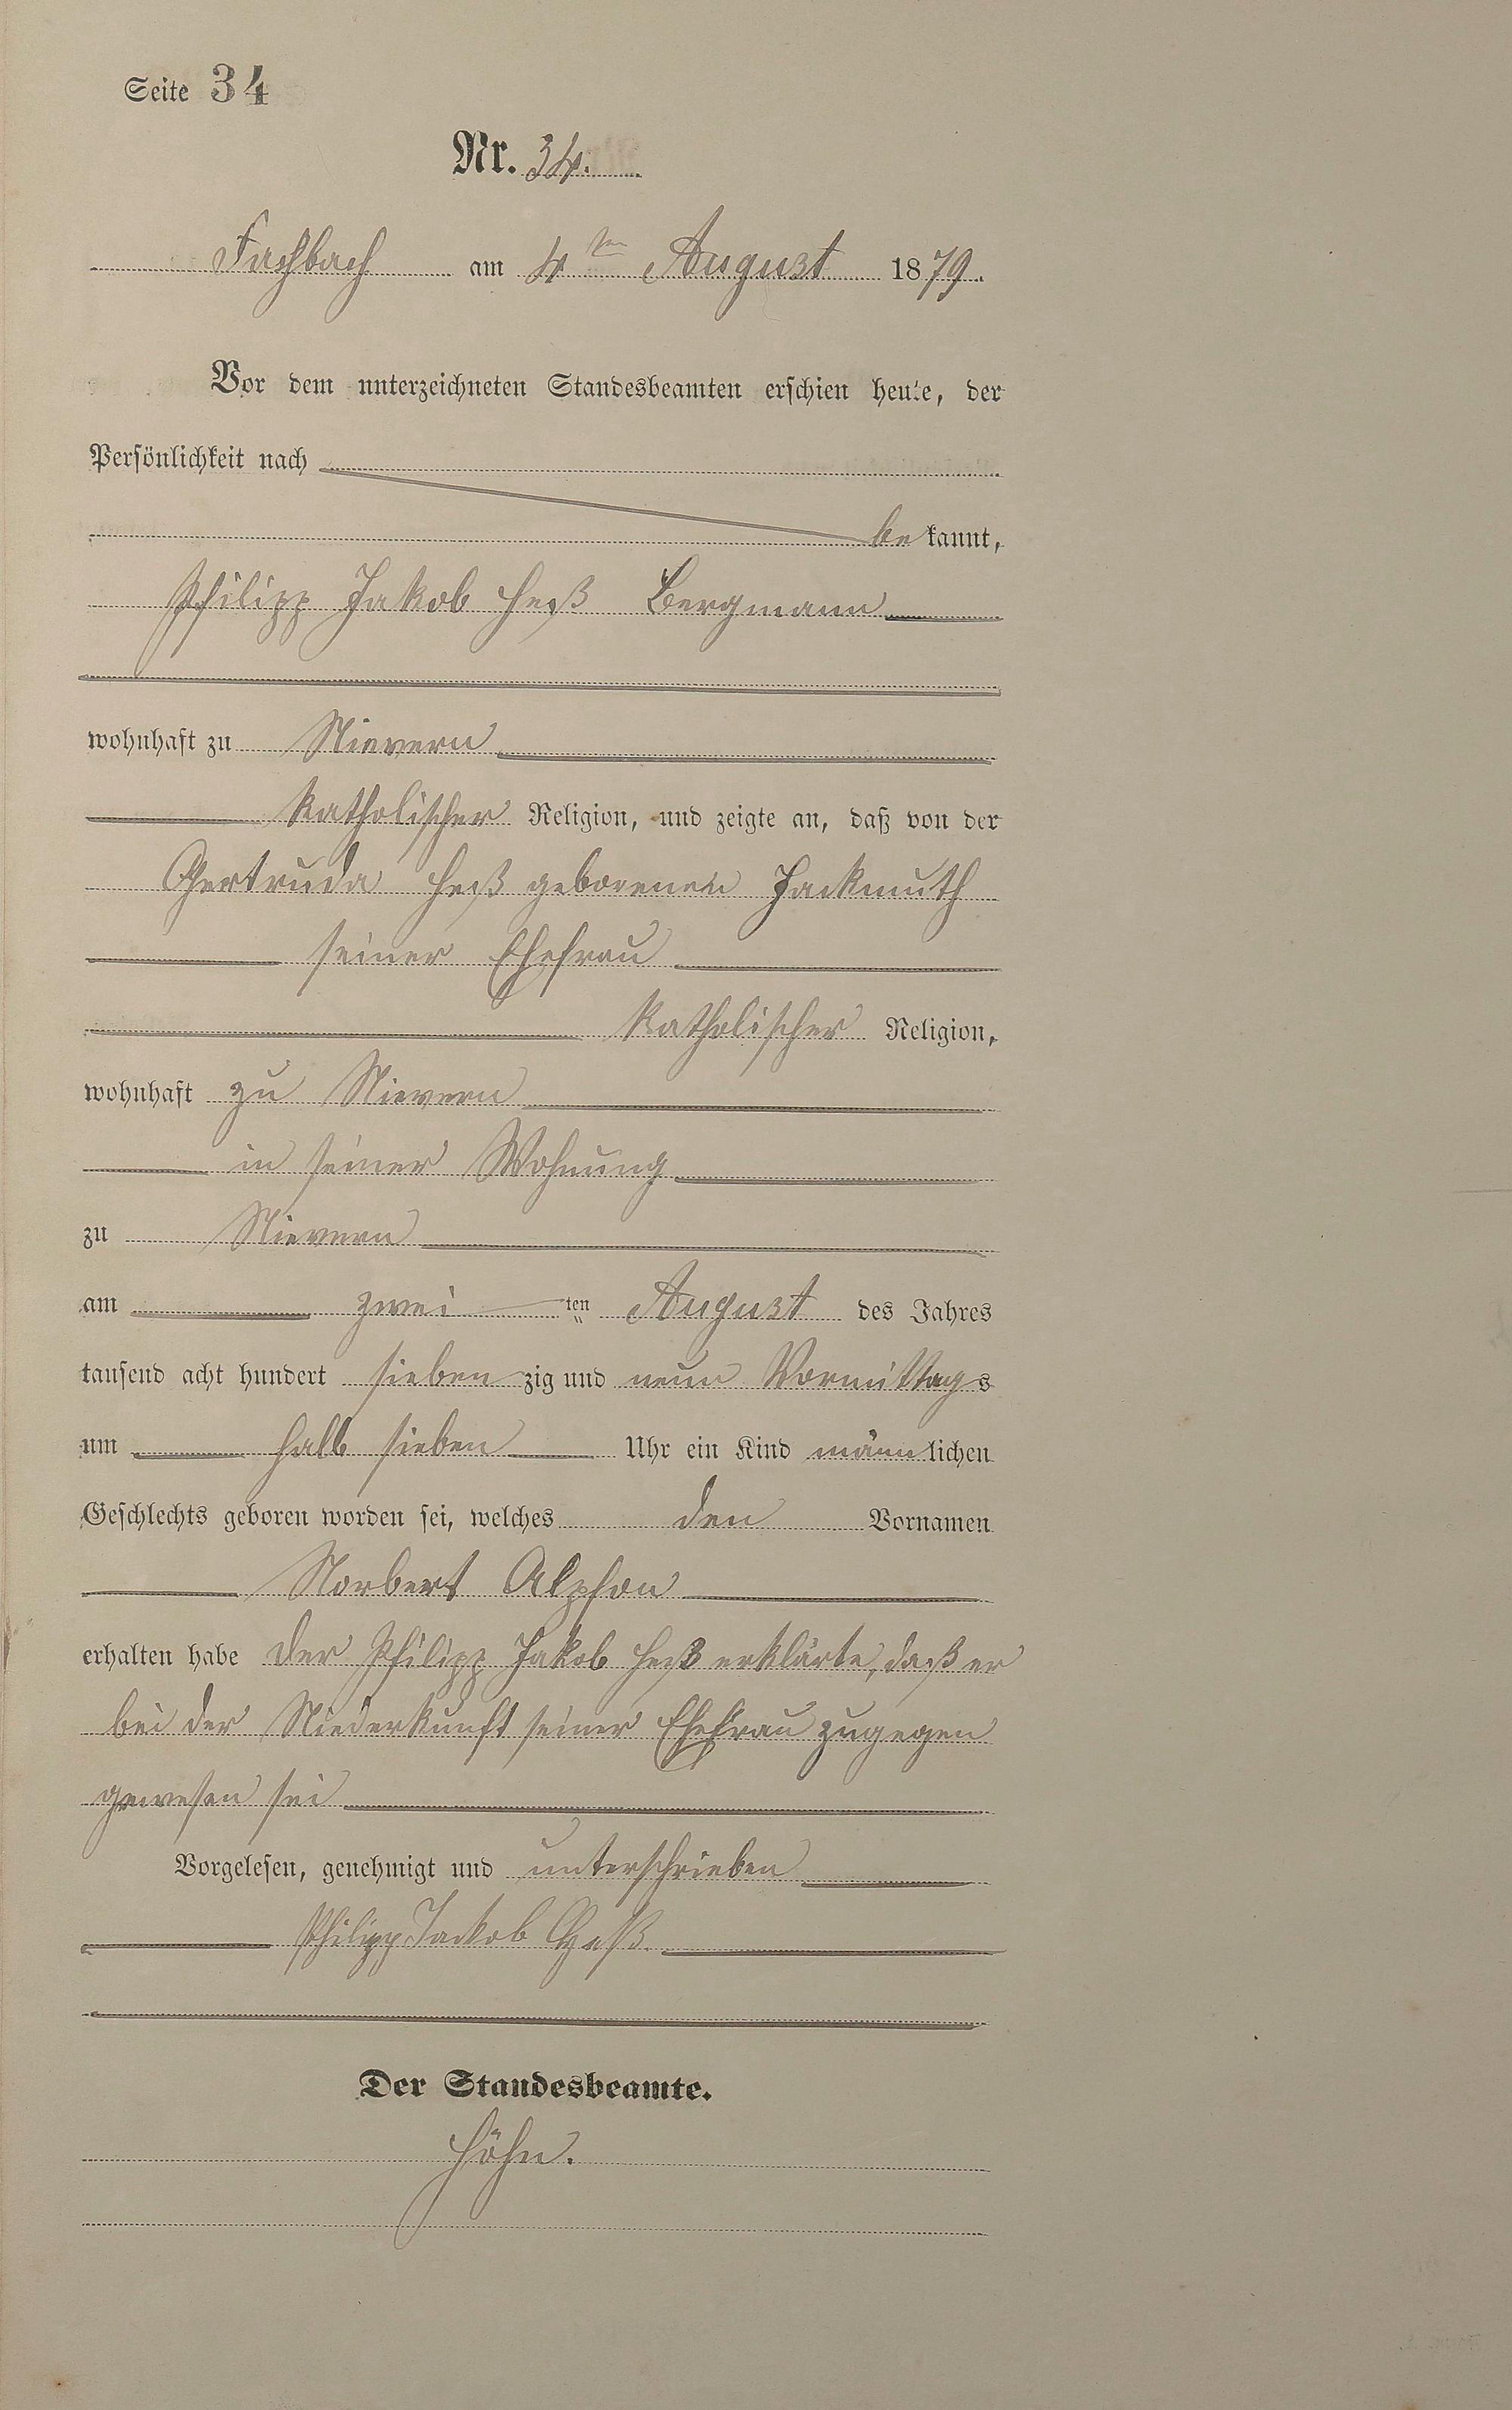 Seite 34
Nr. 34.
Fachbach am 4ten August 1879.
Vor dem unterzeichneten Standesbeamten erschien heute, der
Persönlichkeit nach
bekannt,
Philipp Jakob Heß Bergmann
wohnhaft zu Nievern
katholischer Religion, und zeigte an, daß von der
Gertruda Heß geborenen Jackmuth
seiner Ehefrau
katholischer Religion,
wohnhaft zu Nievern
in seiner Wohnung
zu Nievern
am zwei ten August des Jahres
tausend acht hundert siebenzig und neun Vormittags
um halb sieben Uhr ein Kind männlichen
Geschlechts geboren worden sei, welches den Vornamen
Norbert Alphon
erhalten habe Der Philipp Jakob Heß erklärte, daß er
bei der Niederkunft seiner Ehefrau zugegen
gewesen sei
Vorgelesen, genehmigt und unterschrieben
Philipp Jackob Heß.
Der Standesbeamte.
Höhn.